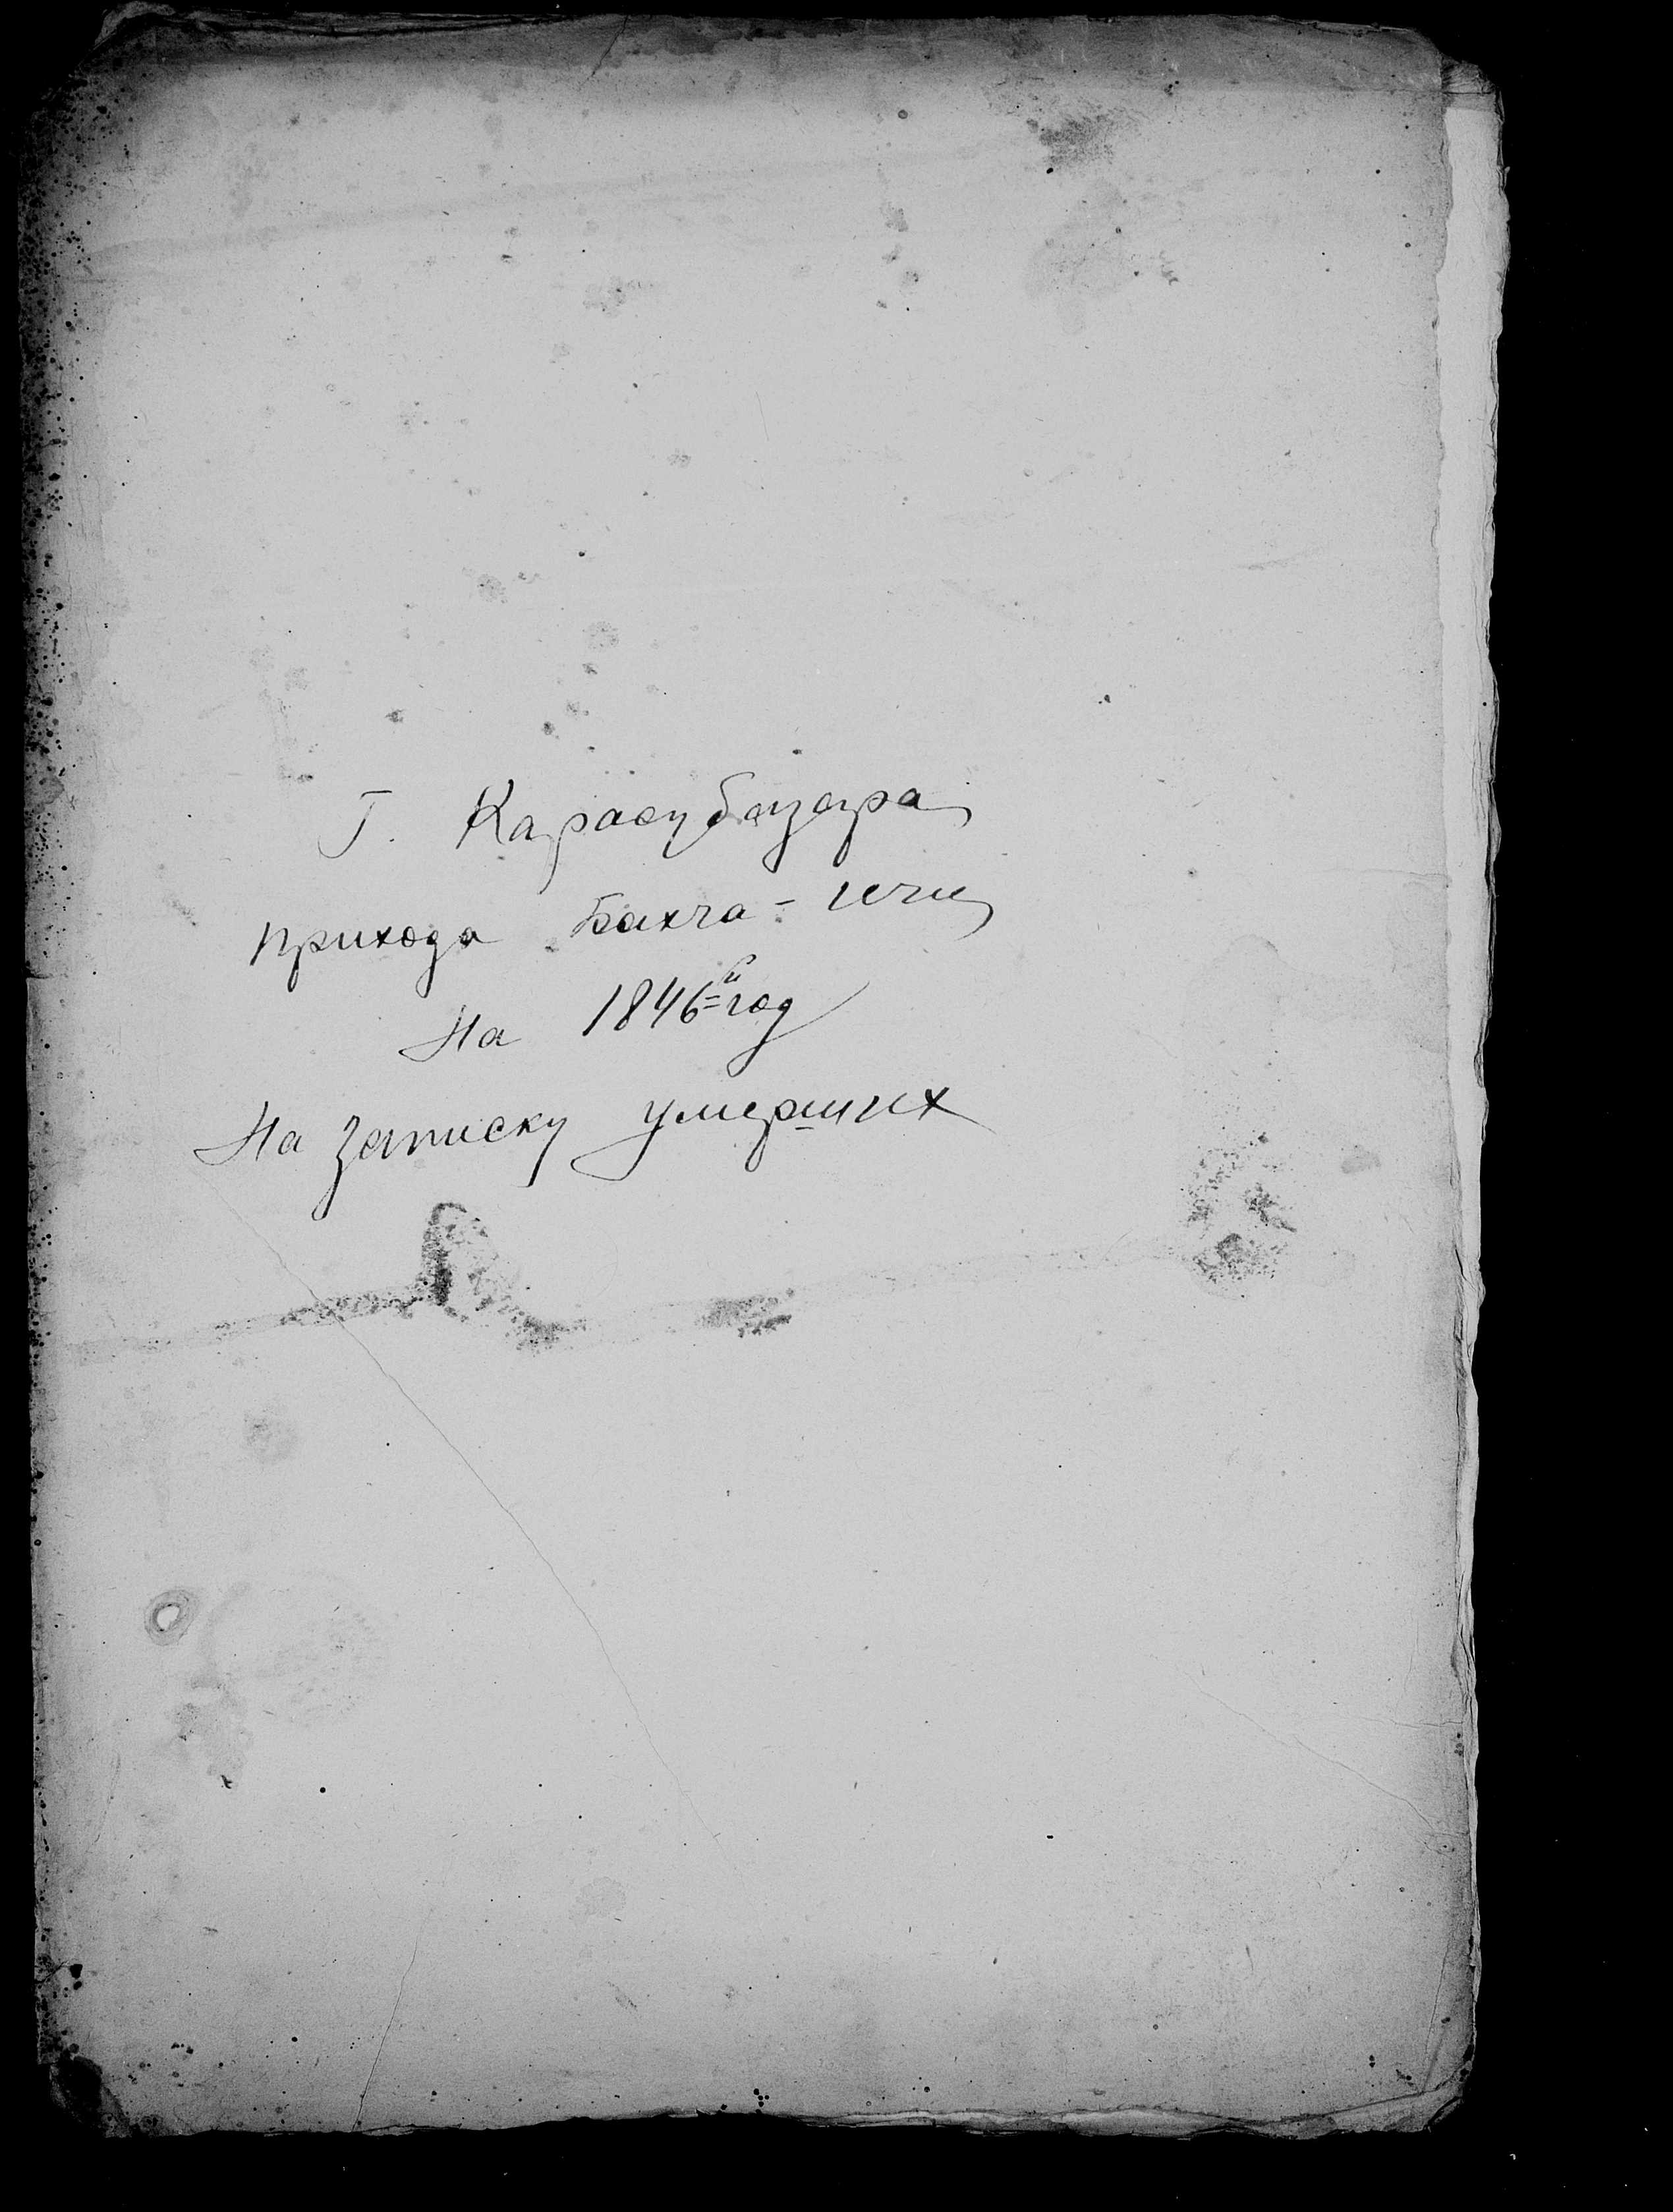 Г. Карасубазара
прихода Бахча-ичи
На 1846й год
На записку умерших